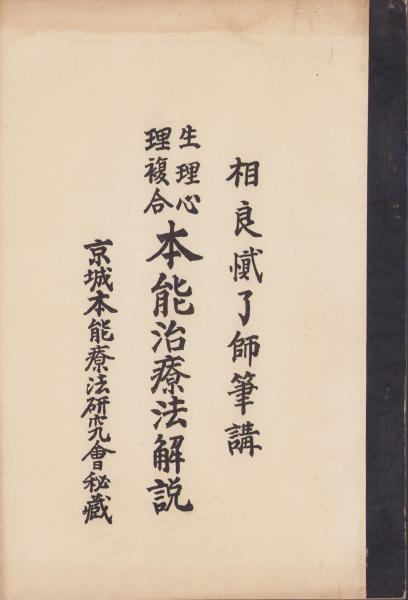 相良了師筆講
生理心
理複合
本能治療法解説
京城本能療法研究會秘藏